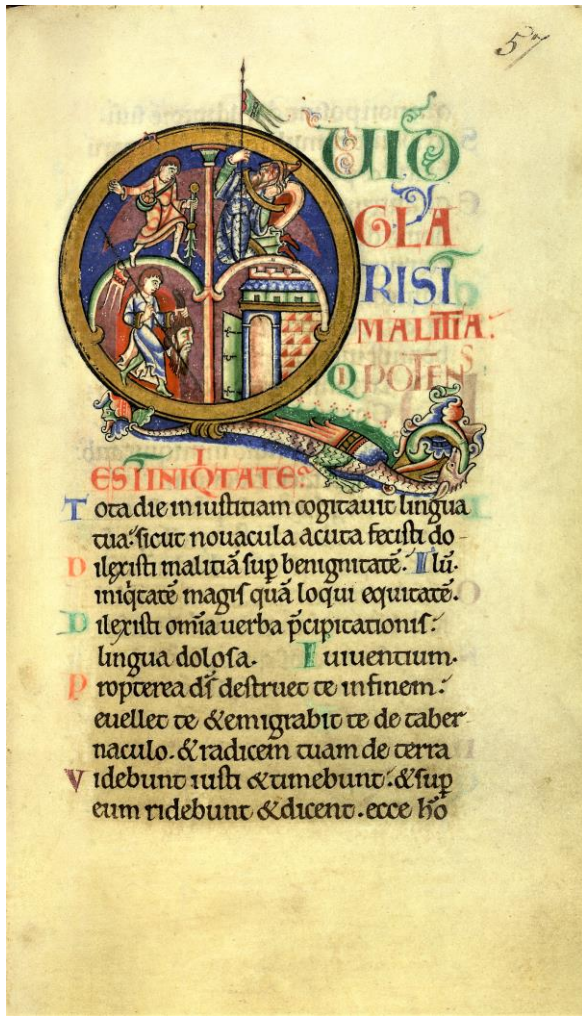 57
QUID
GLA
RIS Ī
MALITIA:
Q POTENS
ES Ī INIQTATE:
Tota die iniustitiam cogitauit lingua
tua: sicut nouacula acuta fecisti do-
Dilexisti malitiā sup̄ benignitatē: lū.
iniq̇tatē magis quā loqui equitatē.
Dilexisti om̄ia uerba p̄cipitationis:
lingua dolosa. uiuentium.
Propterea ds̄ destruet te infinem:
euellet te & emigrabit te de taber
naculo. & radicem tuam de terra
Videbunt iusti & timebunt: & sup̄
eum ridebunt & dicent. ecce hō